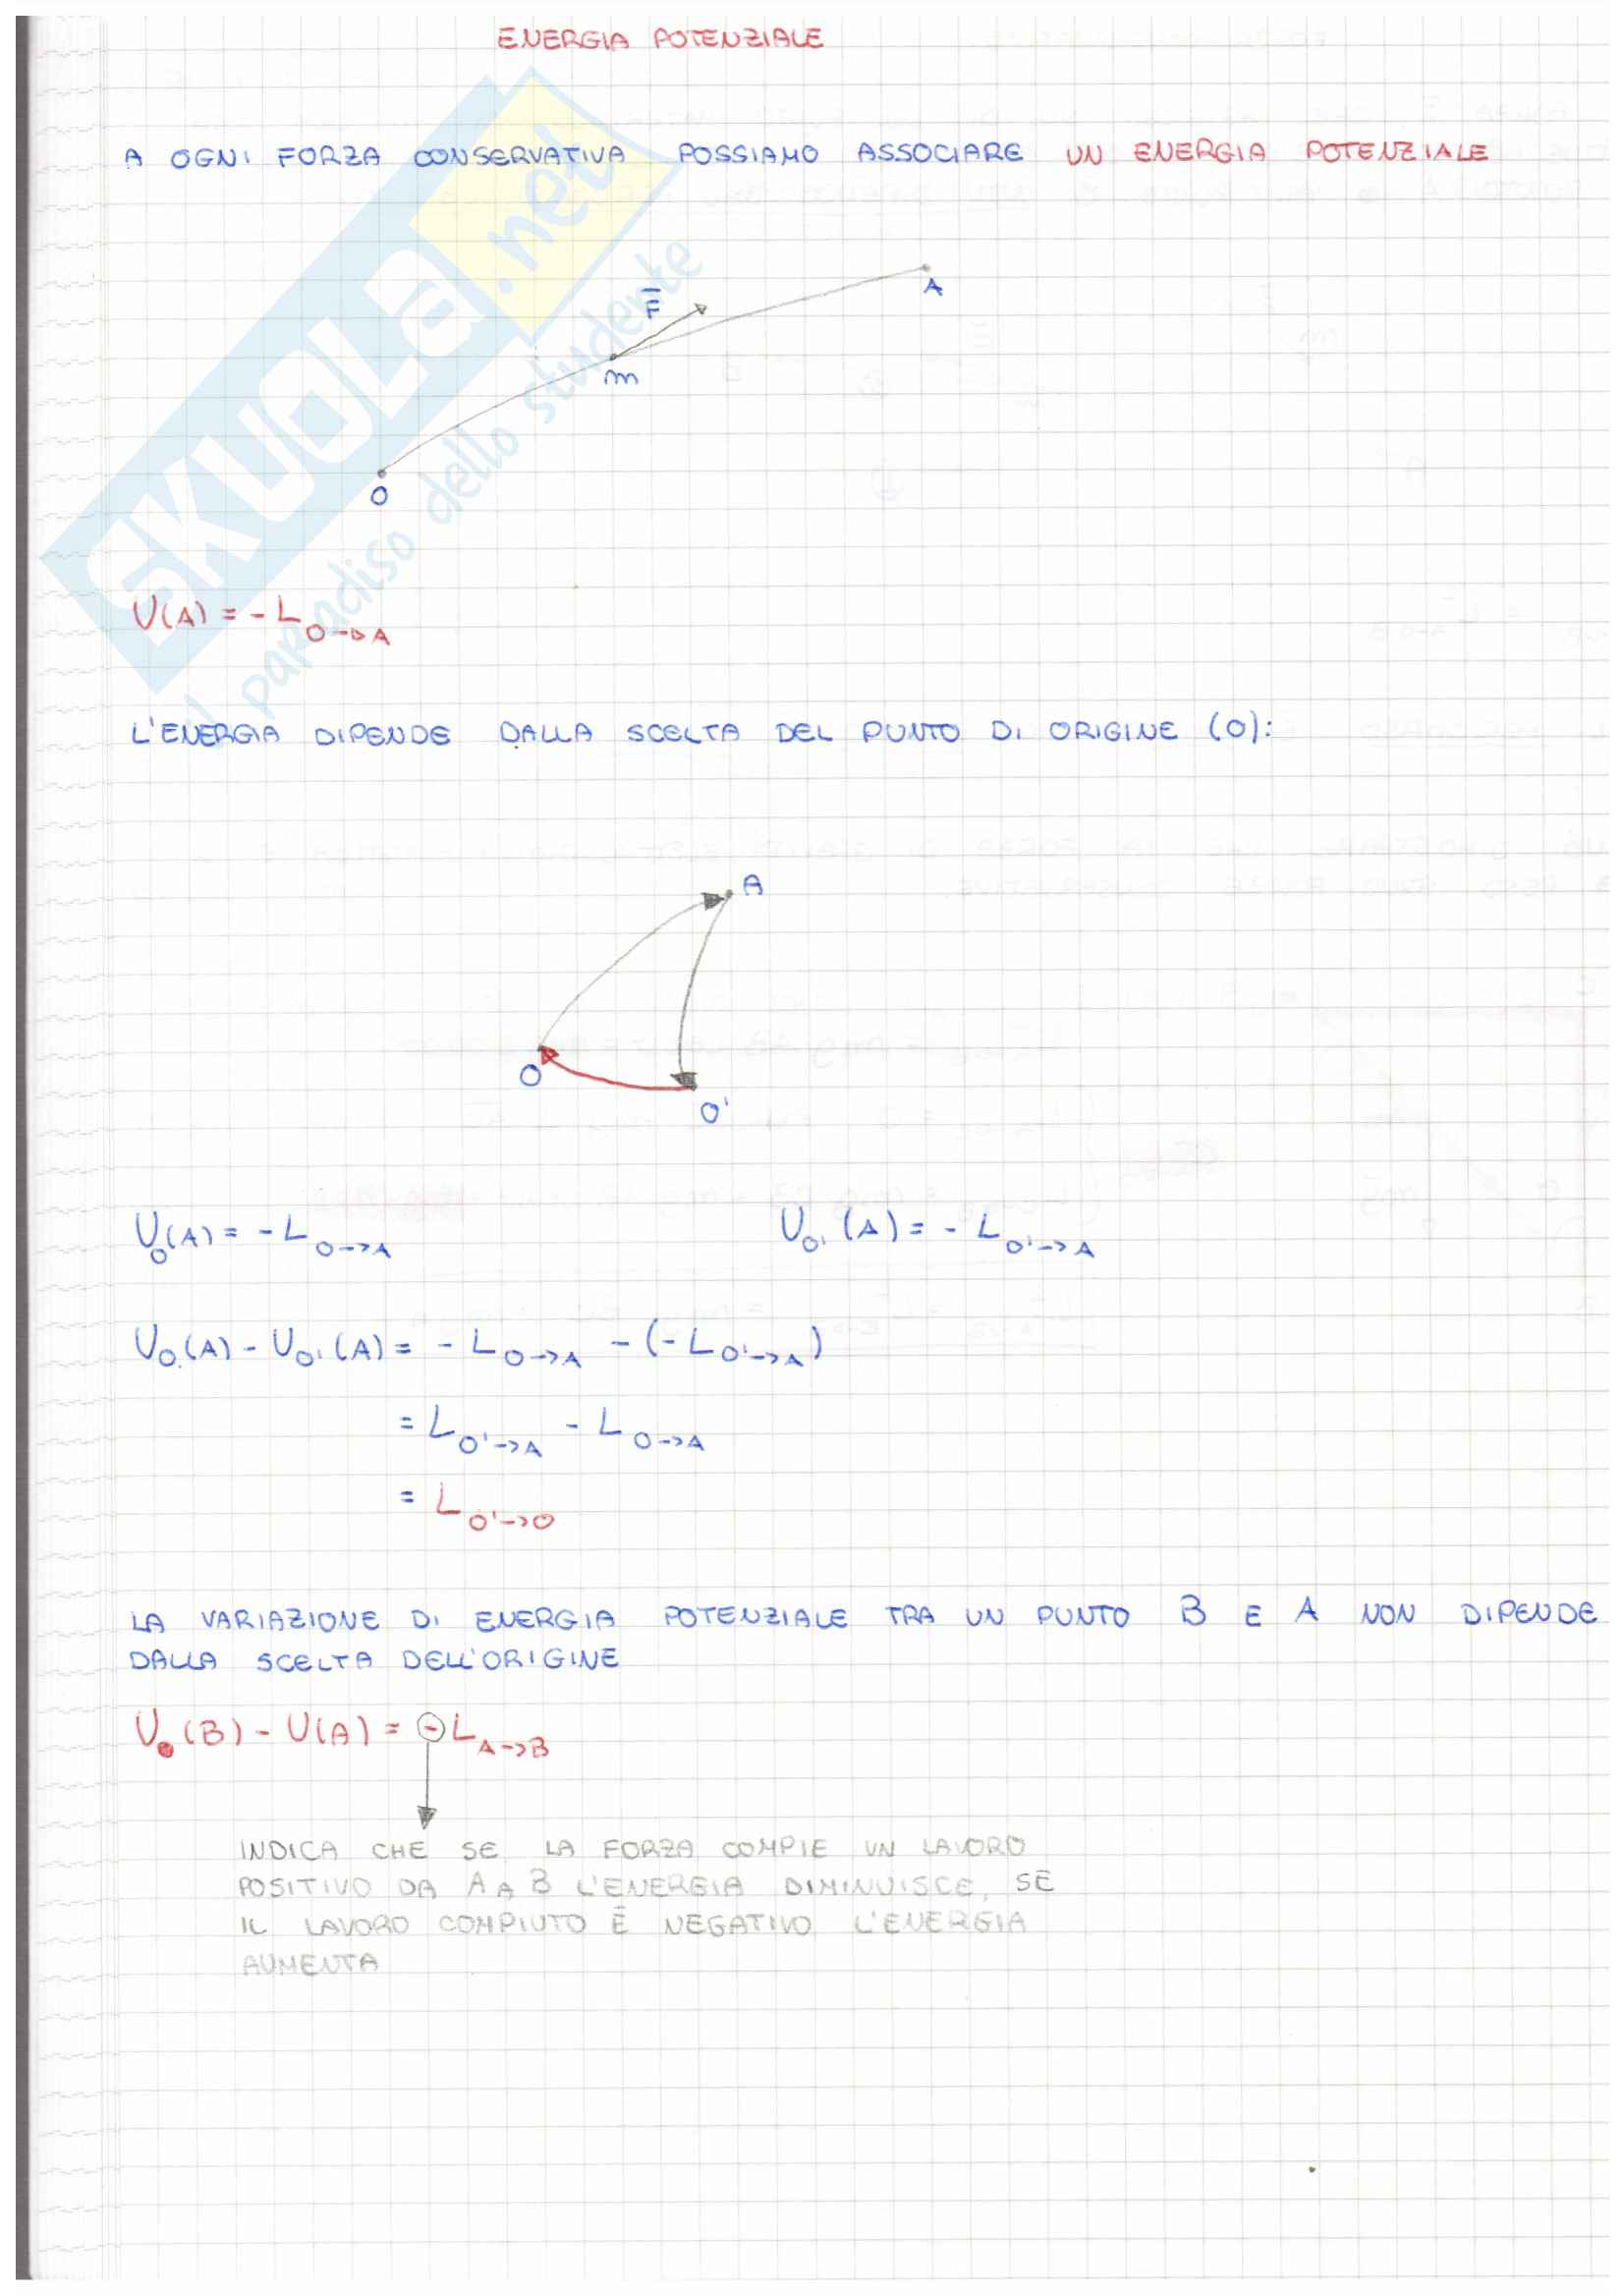 ENERGIA POTENZIALE
A OGNI FORZA CONSERVATIVA POSSIAMO ASSOCIARE UN ENERGIA POTENZIALE
SKUOLA.net
il paradiso dello studente
A
F̄
m
O
U(A) = - L O→A
L'ENERGIA DIPENDE DALLA SCELTA DEL PUNTO DI ORIGINE (O):
A
O
O'
U_O(A) = - L O→A
U_O'(A) = - L O'→A
U_O(A) - U_O'(A) = - L O→A - (- L O'→A)
= L O'→A - L O→A
= L O'→O
LA VARIAZIONE DI ENERGIA POTENZIALE TRA UN PUNTO B E A NON DIPENDE
DALLA SCELTA DELL'ORIGINE
U(B) - U(A) = - L A→B
INDICA CHE SE LA FORZA COMPIE UN LAVORO
POSITIVO DA A A B L'ENERGIA DIMINUISCE, SE
IL LAVORO COMPIUTO È NEGATIVO L'ENERGIA
AUMENTA